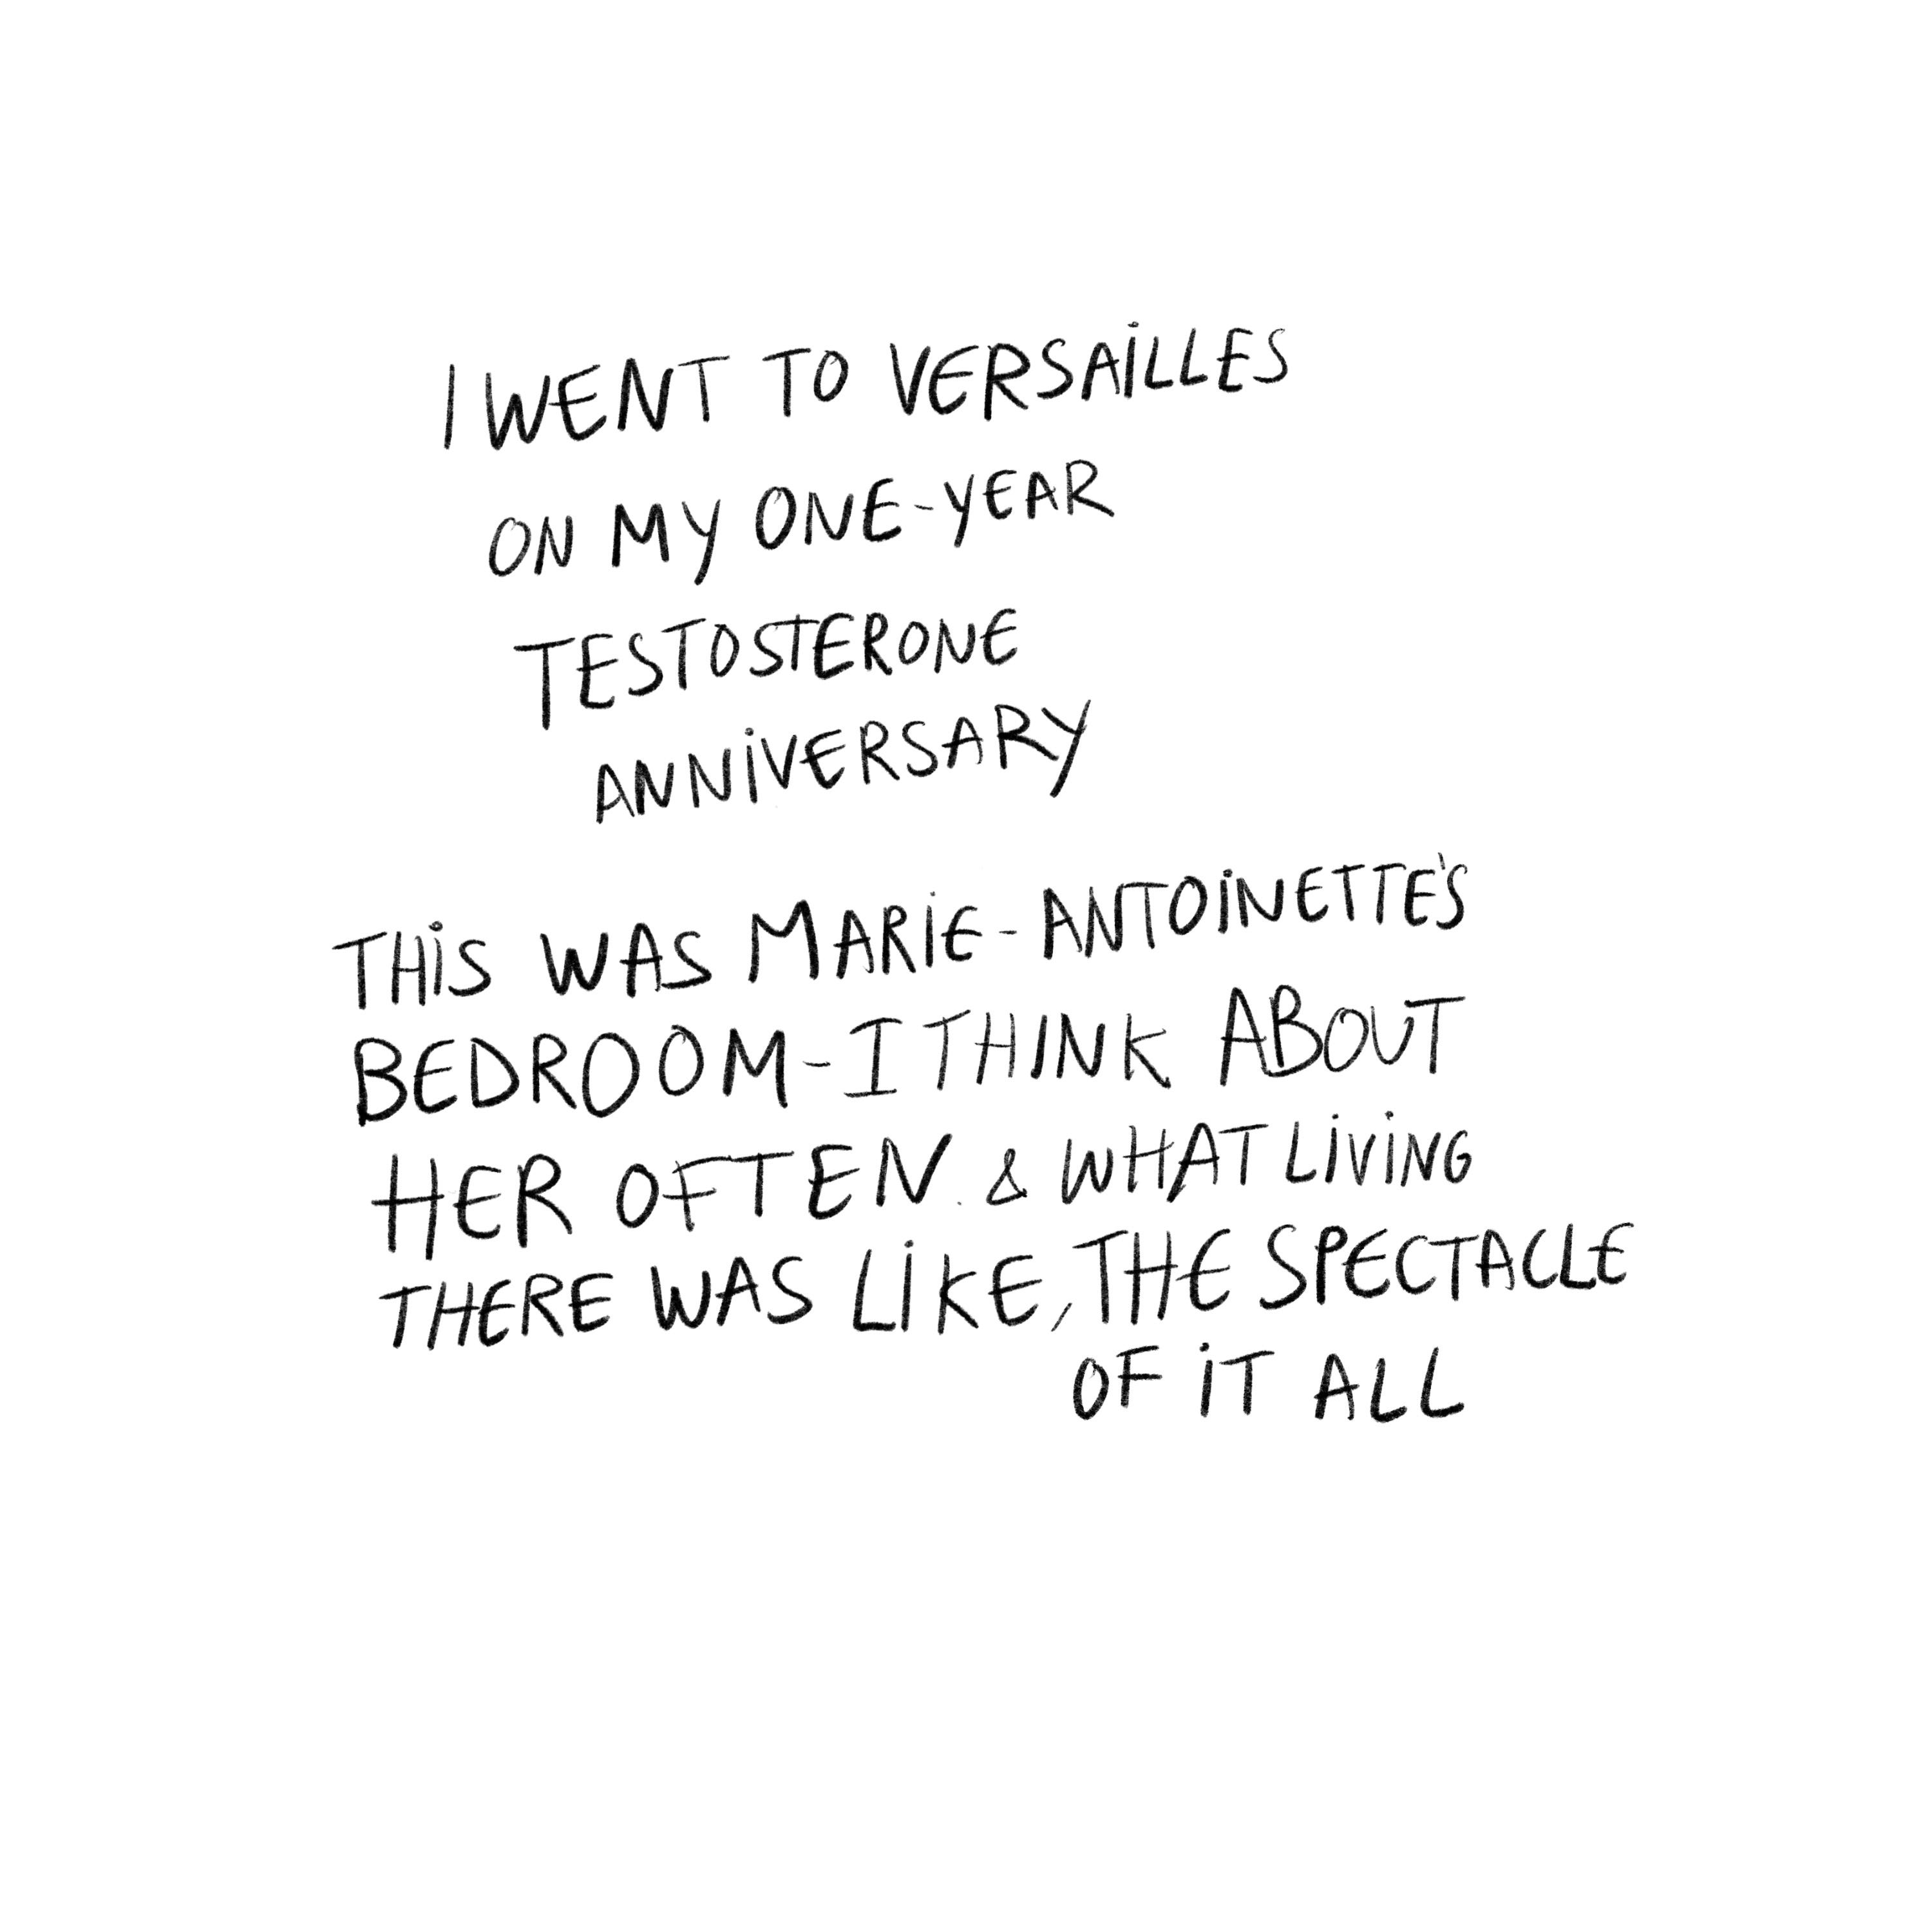 I WENT TO VERSAILLES
ON MY ONE-YEAR
TESTOSTERONE
ANNIVERSARY
THIS WAS MARIE-ANTOINETTE'S
BEDROOM-I THINK ABOUT
HER OFTEN. & WHAT LIVING
THERE WAS LIKE, THE SPECTACLE
OF IT ALL